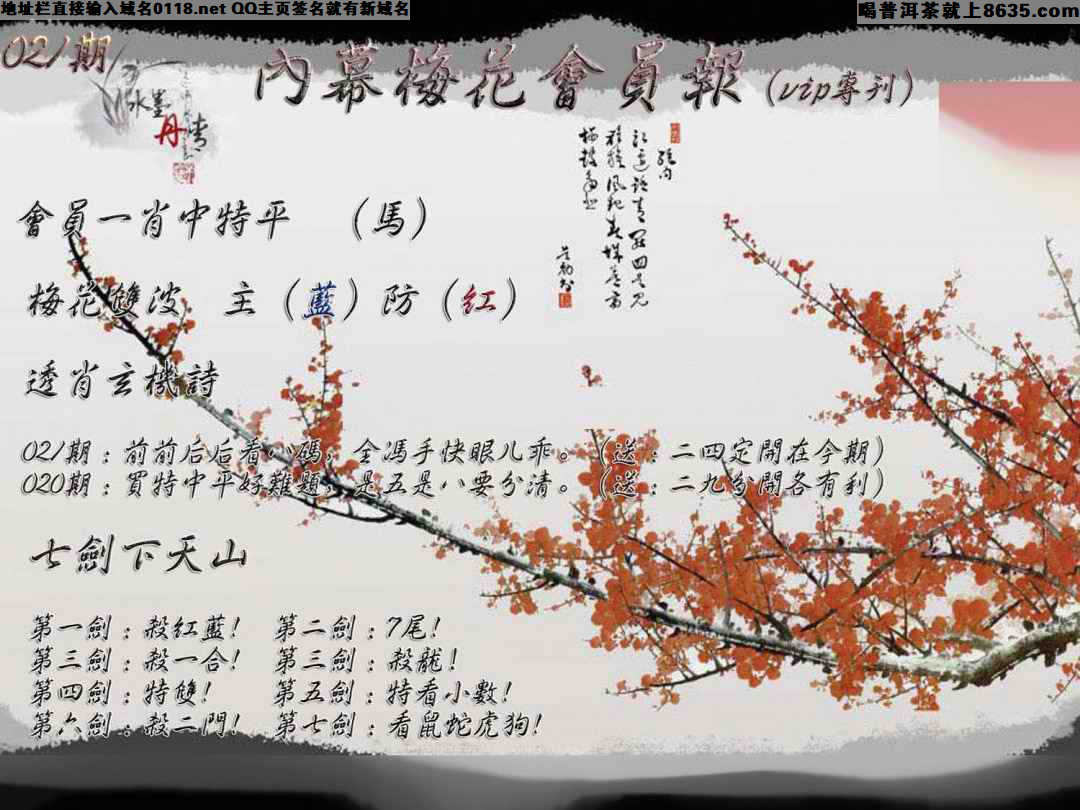 地址栏直接输入域名0118.net QQ主页签名就有新域名
喝普洱茶就上8635.com
021期
內幕梅花會員報(vip專刊)
水墨
丹青
會員一肖中特平 (馬)
梅花雙波 主(藍)防(紅)
透肖玄機詩
021期：前前后后看八碼，全馮手快眼儿乖。(送：二四定開在今期)
020期：買特中平好難題，是五是八要分清。(送：二九分開各有利)
七劍下天山
第一劍：殺紅藍! 第二劍：7尾!
第三劍：殺一合! 第三劍：殺龍!
第四劍：特雙! 第五劍：特看小數!
第六劍：殺二門! 第七劍：看鼠蛇虎狗!